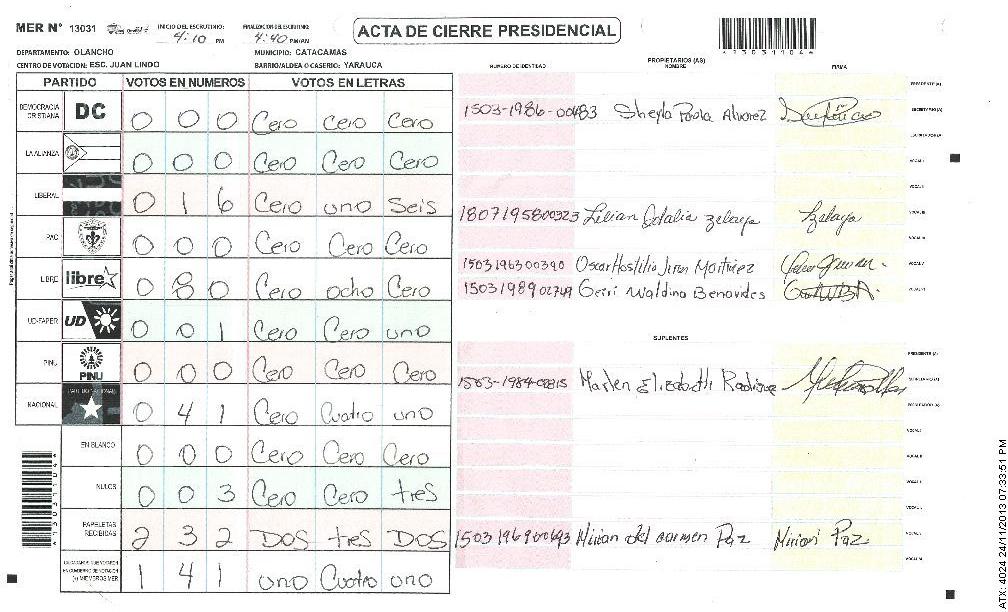 MER N° 13031 INICIO DEL ESCRUTINIO: 4:10 PM FINALIZACION DEL ESCRUTINIO: 4:40 PM/AM ACTA DE CIERRE PRESIDENCIAL
DEPARTAMENTO: OLANCHO MUNICIPIO: CATACAMAS
CENTRO DE VOTACION: ESC. JUAN LINDO BARRIO/ALDEA O CASERIO: YARAUCA
PARTIDO VOTOS EN NUMEROS VOTOS EN LETRAS
DEMOCRACIA CRISTIANA DC 0 0 0 Cero Cero Cero
LA ALIANZA 0 0 0 Cero Cero Cero
LIBERAL 0 1 6 Cero uno Seis
PAC 0 0 0 Cero Cero Cero
LIBRE libre 0 8 0 Cero ocho Cero
UD-FAPER UD 0 0 1 Cero Cero uno
PINU PINU 0 0 0 Cero Cero Cero
NACIONAL 0 4 1 Cero Cuatro uno
EN BLANCO 0 0 0 Cero Cero Cero
NULOS 0 0 3 Cero Cero tres
PAPELETAS RECIBIDAS 2 3 2 DOS tres DOS
1 4 1 uno Cuatro uno
PROPIETARIOS (AS)
NUMERO DE IDENTIDAD NOMBRE FIRMA
PRESIDENTE (A)
1503-1986-00483 Sheyla Paola Alvarez SECRETARIO (A)
ESCRUTADOR (A)
VOCAL I
VOCAL II
1807195800323 Lilian Odalia Zelaya Zelaya VOCAL III
VOCAL IV
1503196300390 Oscar Hostilio Martinez VOCAL V
1503198902749 Geiri Waldina Benavides VOCAL VI
SUPLENTES
PRESIDENTE (A)
Marlen Elizabeth SECRETARIO (A)
ESCRUTADOR (A)
VOCAL I
VOCAL II
VOCAL III
VOCAL IV
Mirian del carmen Paz Mirian Paz VOCAL V
VOCAL VI
ATX: 4024 24/11/2013 07:33:51 PM